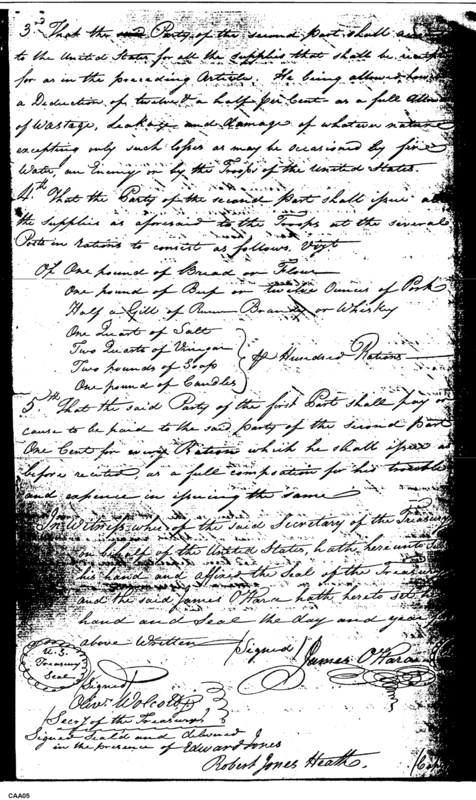 3d That the Party of the second part shall
to the United States for all the supplies that shall be
for as in the preceding Article. He being allowed
a Deduction of twelve & a half per Cent as a full
of Wastage, Leakage and damage of whatever nature
excepting only such losses as may be occasioned by fire
Water, an Enemy or by the Troops of the United States.
4th That the Party of the second part shall issue
the supplies as aforesaid to the Troops at the several
Posts in rations to consist as follows, Vizt
Of One pound of Bread or Flour
One pound of Beef or twelve Ounces of Pork
Half a Gill of Rum Brandy or Whisky
One Quart of Salt
Two Quarts of Vinegar
Two pounds of Soap
One pound of Candles
Hundred Rations
5th That the said Party of the first Part shall pay or
cause to be paid to the said party of the second Part
One Cent for every Ration which he shall issue as
before recited, as a full compsation for his trouble
and expence in issuing the same
In Witness whereof the said Secretary of the Treasury
on behalf of the United States, hath hereunto
his hand and affixed the Seal of the Treasury
and the said James O'Hara hath hereto set his
hand and Seal the day and year
above Written
(Signed) James O'Hara
U.S. Treasury Seal
Signed
Olivr Wolcott
Secy of the Treasury
Signed Seald and delivered
in the presence of Edward Jones
Robert Jones Heath.
CAA05